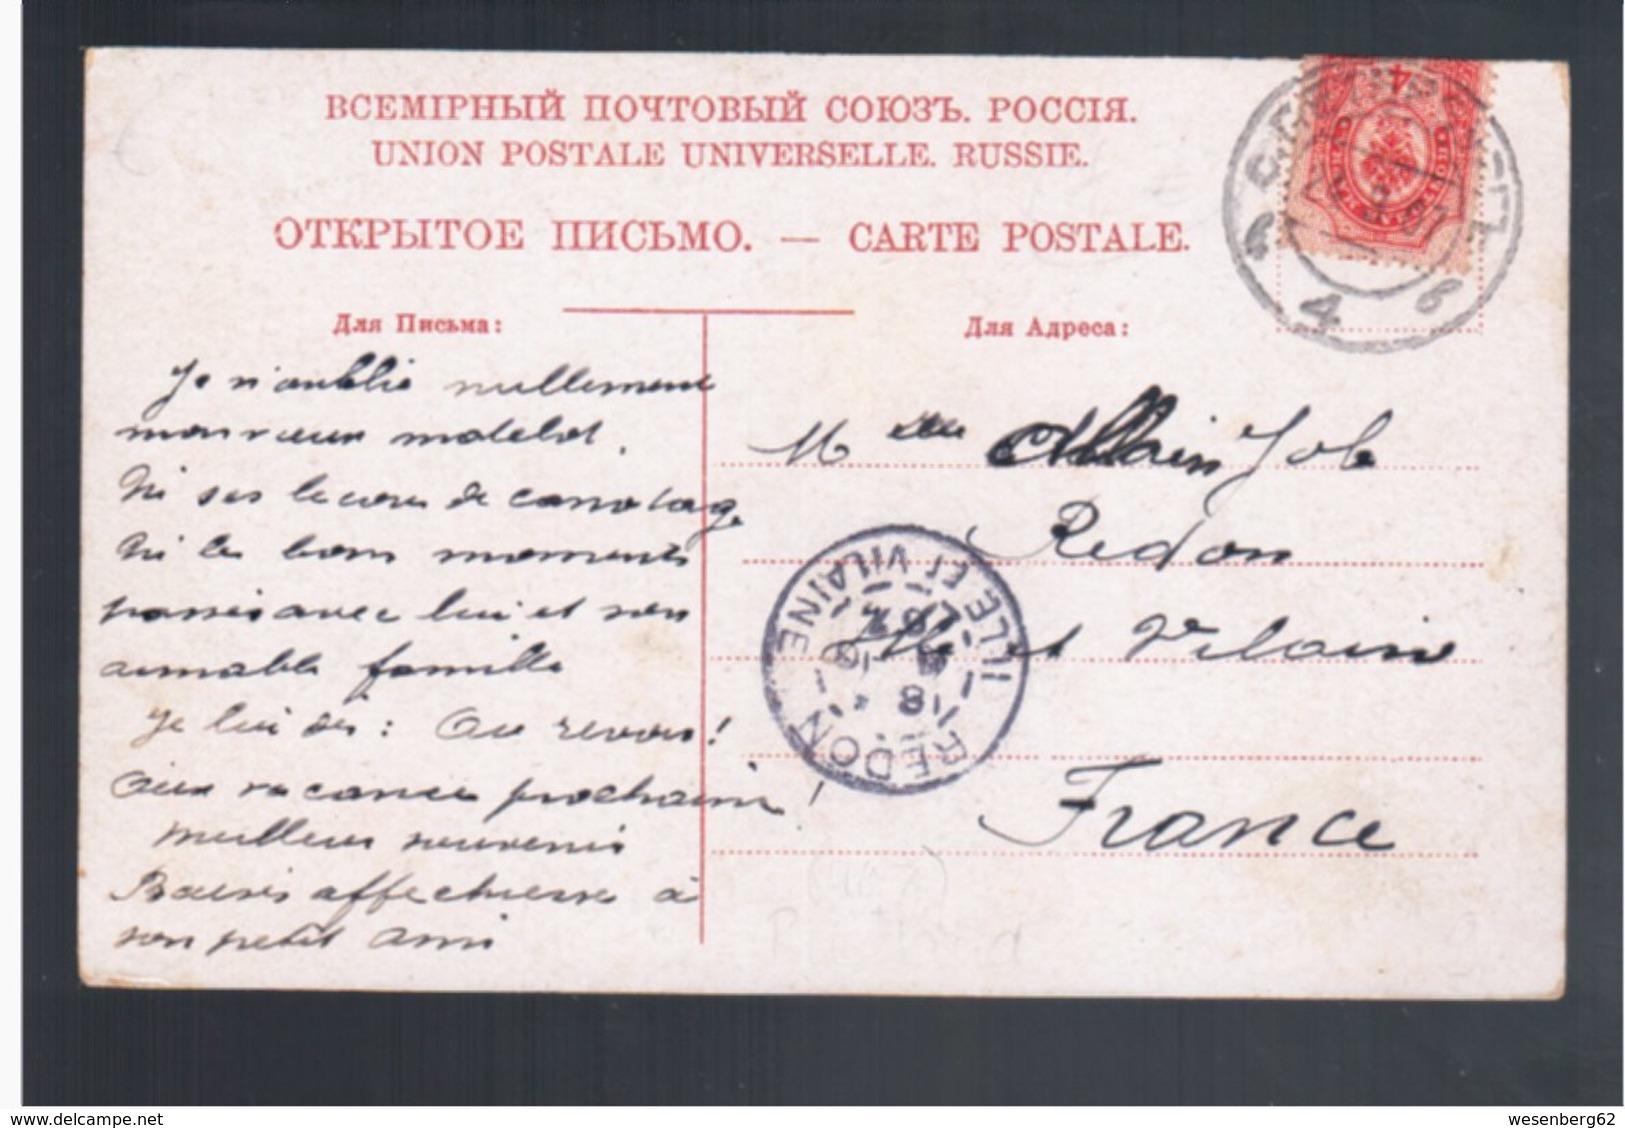 ВСЕМІРНЫЙ ПОЧТОВЫЙ СОЮЗЪ. РОССІЯ.
UNION POSTALE UNIVERSELLE. RUSSIE.
ОТКРЫТОЕ ПИСЬМО. — CARTE POSTALE.
Для Письма:
Для Адреса:
Je n'oublie nullement
mon vieux matelot.
Ni ses le cours de canotage
Ni les bons moments
passés avec lui et son
aimable famille
Je lui dis : Au revoir !
Aux vacances prochaines !
Meilleurs souvenirs
Baisers affectueux à
son petit ami
M Allain Job
Redon
Ille et Vilaine
France
REDON
ILLE ET VILAINE
4
6 4 6
delcampe.net
wesenberg62